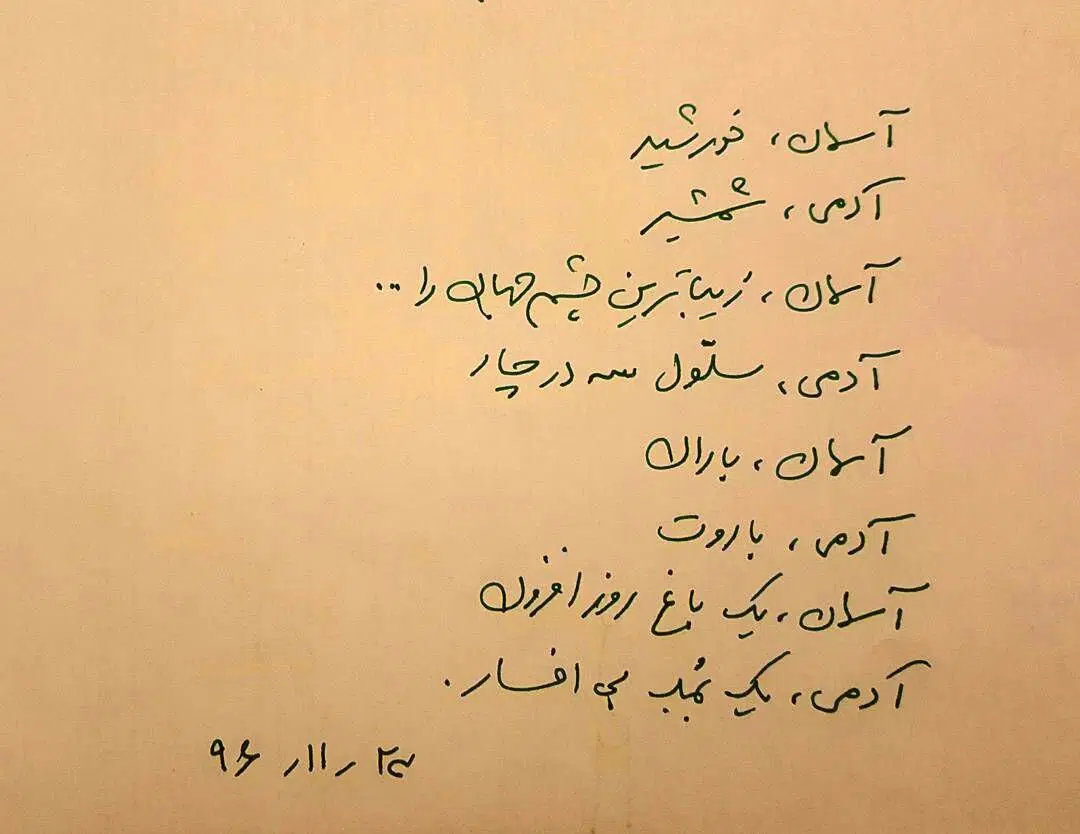 آسمان، خورشید
آدمی، شمشیر
آسمان، زیباترینِ چشم جهان را ...
آدمی، سلّول سه در چار
آسمان، باران
آدمی، باروت
آسمان، یک باغ روزافزون
آدمی، یک بُمب بی افسار.
۲۴ ر ۱۱ر ۹۶